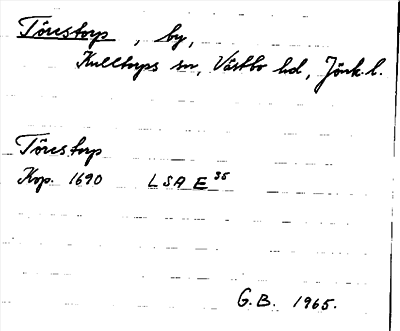 Törestorp, by,
Kulltorps sn, Västbo hd, Jönk. l.
Törestorp
Kop. 1690 LSA E 35
G.B. 1965.